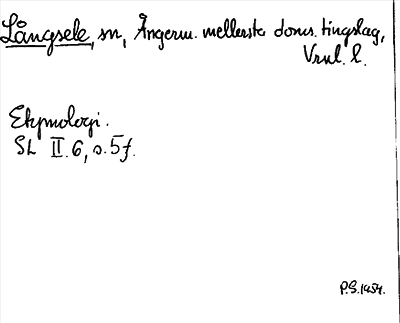 Långsele, sn, Ångerm. mellersta doms. tingslag,
Vrnl. l.
Etymologi.
SL II.6, s.5f.
P.S.1954.